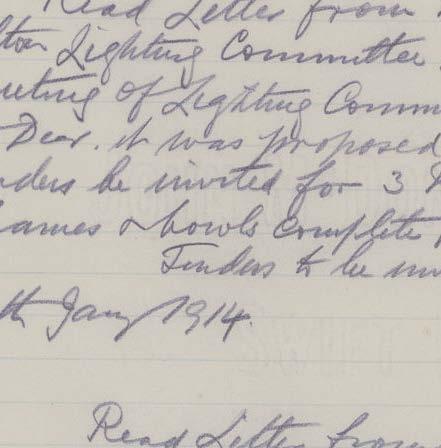 Read Letter from
lton Lighting Committee
eeting of Lighting Comm
Dear. it was proposed
nders be invited for 3
lames & bowls complete
Tenders to be inv
th Jany 1914.
Read Letter from